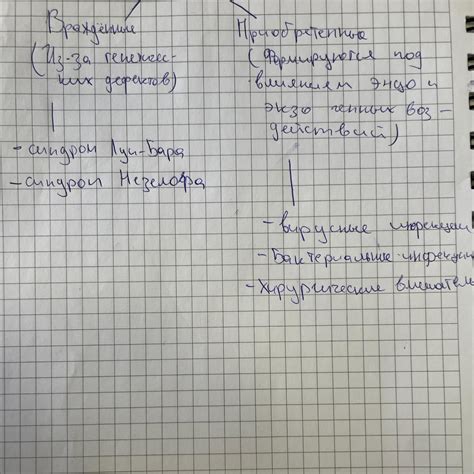 Врождённые
(Из-за генетичес-
ких дефектов)
- синдром Луи-Бара
- синдром Незелофа
Приобретенные
(Формируются под
влиянием эндо и
экзо генных воз-
действий)
- вирусные инфекции
- Бактериальные инфекции
- Хирургические вмешатель